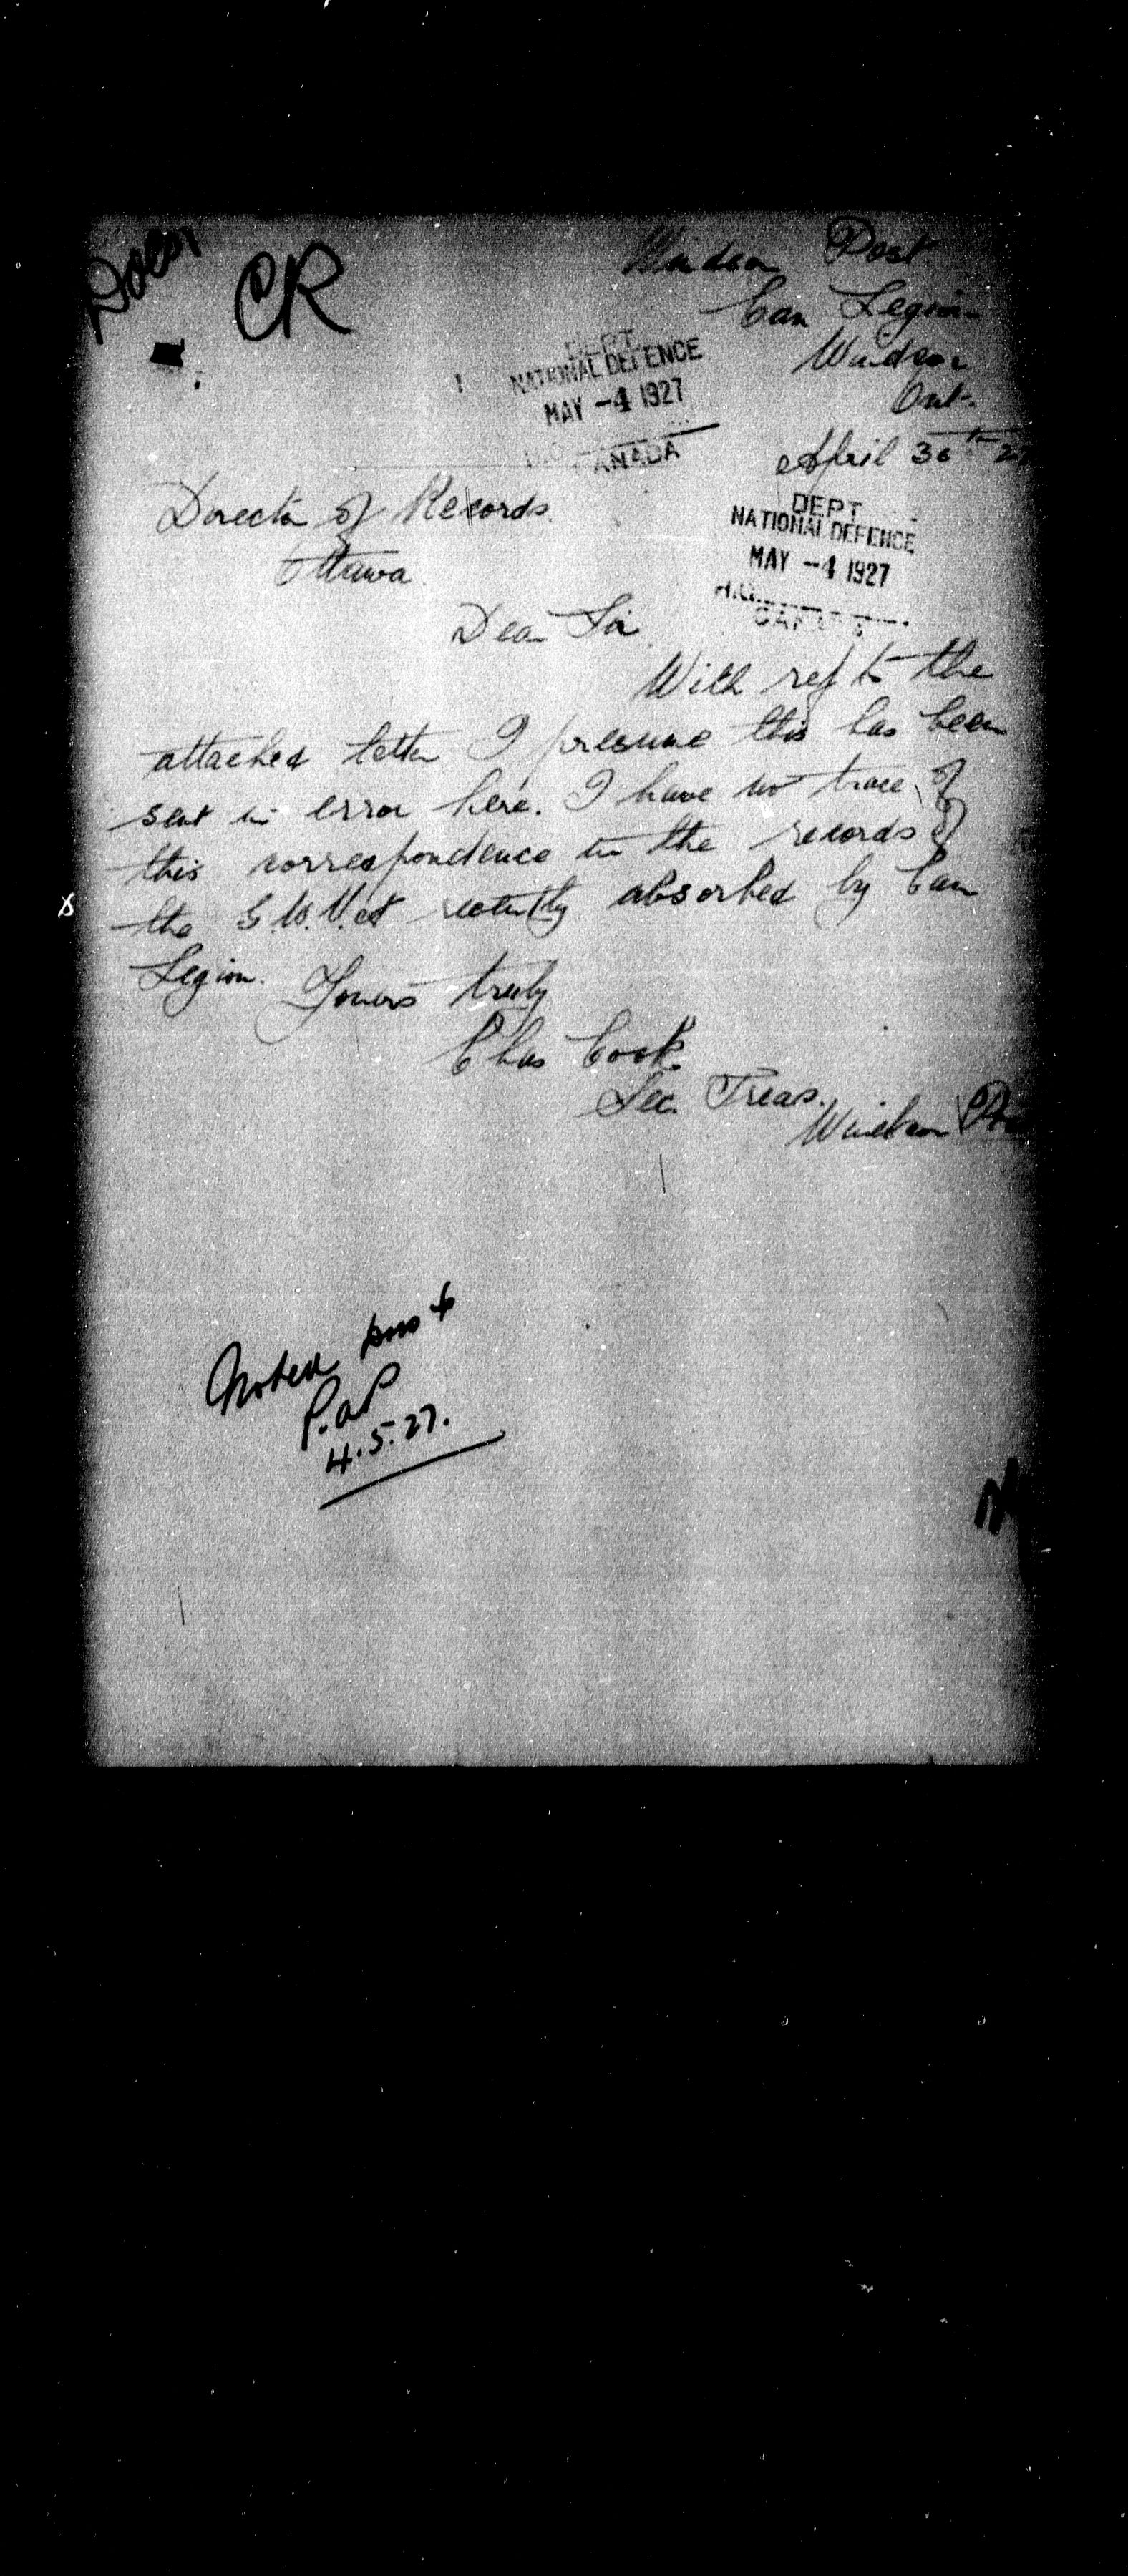 CR
Windsor Post
Can Legion
Windsor
Ont.
April 30th
DEPT.
NATIONAL DEFENCE
MAY -4 1927
CANADA
Director of Records.
Ottawa.
DEPT
NATIONAL DEFENCE
MAY -4 1927
H.Q.
CANADA
Dear Sir,
With ref to the
attached letter I presume this has been
sent in error here. I have no trace of
this correspondence in the records of
the recently absorbed by Can
Legion. Yours truly
Chas Cook.
Sec. Treas.
Windsor
Noted
4.5.27.